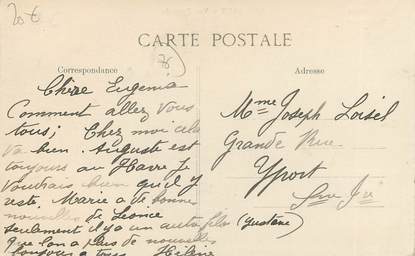 20 €
CARTE POSTALE
Correspondance
Adresse
Chère Eugenia
Comment allez vous
tous; Chez moi cela
va bien. Auguste est
toujours au Havre Je
voudrais bien qu'il y
reste. Marie a de bonne
nouvelles de Leonce
seulement il y a un autre (Gustave)
que l'on a pas de nouvelles
toujours a tous Hélène
Mme Joseph Loisel
Grande Rue
Yport
Sne Inf